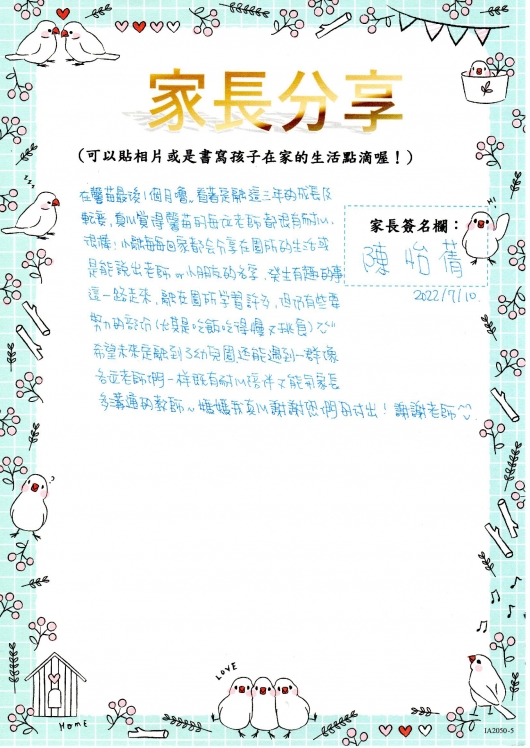 家長分享
(可以貼相片或是書寫孩子在家的生活點滴喔!)
在馨苗最後1個月嚕。看著是融這三年的成長及
轉變,真心覺得馨苗的每位老師都很有耐心,
很棒!小融每每回家都會分享在園所的生活或
是能說出老師or小朋友的名字,發生有趣的事
這一路走來,融在園所學習許多,但仍有些要
努力的部份(尤其是吃飯吃得慢又挑食)
希望未來是融到了幼兒園還能遇到一群像
各位老師們一樣既有耐心陪伴又能與家長
多溝通的教師~媽媽我真心謝謝您們的付出!謝謝老師
家長簽名欄:
陳怡蒨
2022/7/10.
LOVE
HOME
IA2050-5